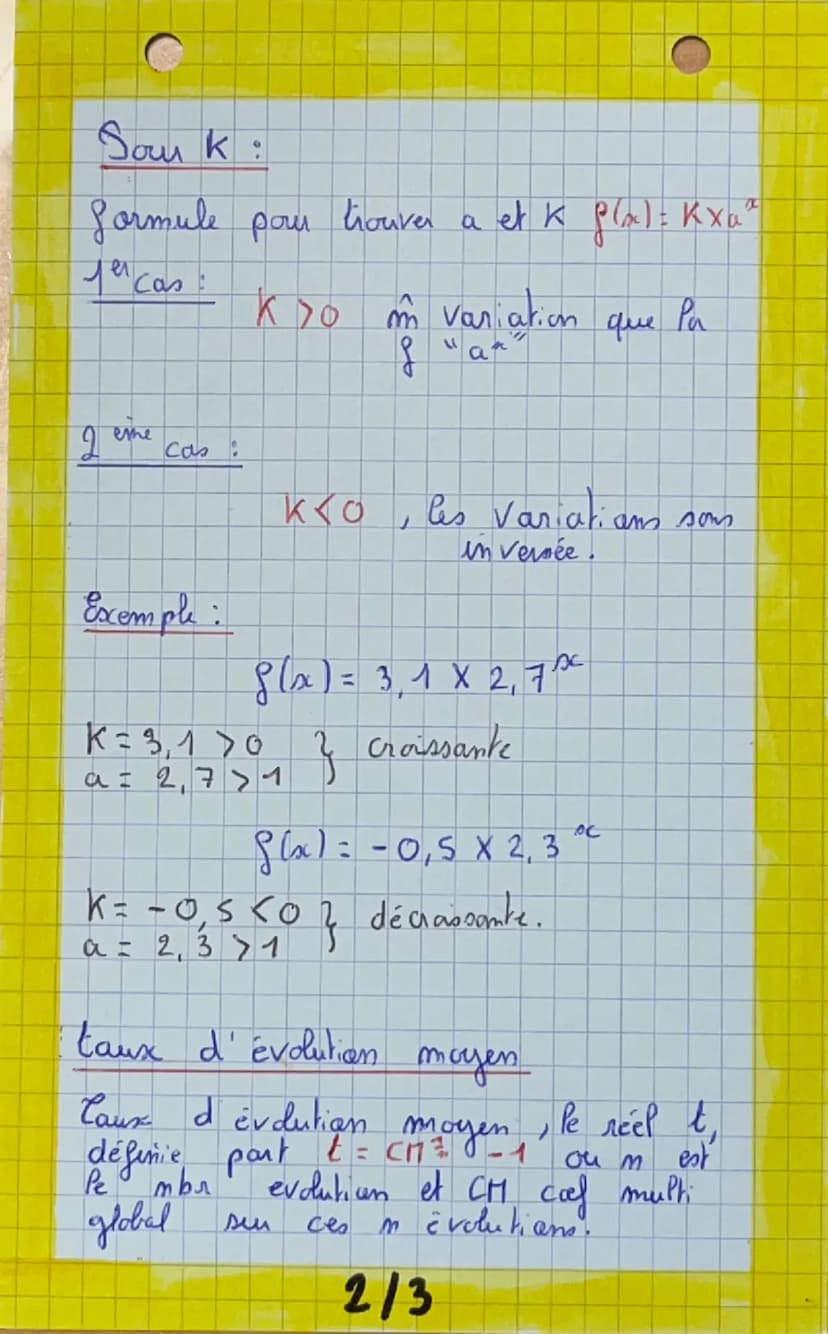 Sou k :
formule pour trouver a et K f(x) = K x a^x
1er cas :
K > 0 m̂ variation que la
f "a^x"
2 eme cas :
K < 0 , les variations sons
inversée .
Exemple :
f(x) = 3,1 x 2,7^x
K = 3,1 > 0 } croissante
a = 2,7 > 1
f(x) = - 0,5 x 2,3^x
K = - 0,5 < 0 } décroissante.
a = 2,3 > 1
taux d'évolution moyen
Taux d évolution moyen , le réel t,
définie part t = CM - 1 ou n est
le nbr evolution et CM coef multi
global sur ces n évolutions.
2/3